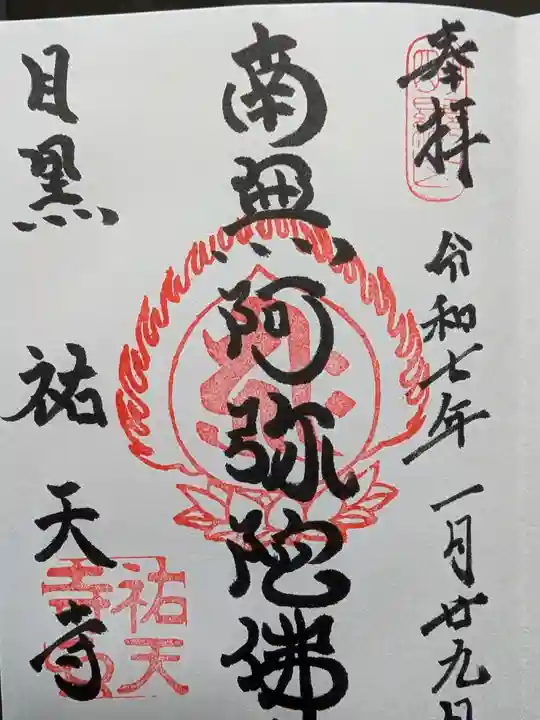 奉拝
令和七年 一月廿九日
南無阿弥陀佛
目黒 祐天寺
祐天寺